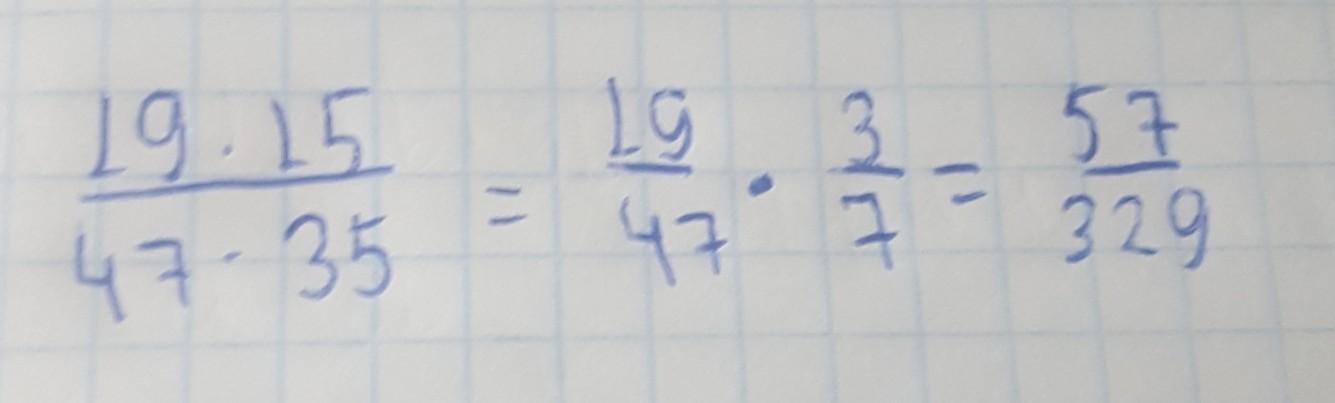 19 · 15 / 47 · 35 = 19/47 · 3/7 = 57/329